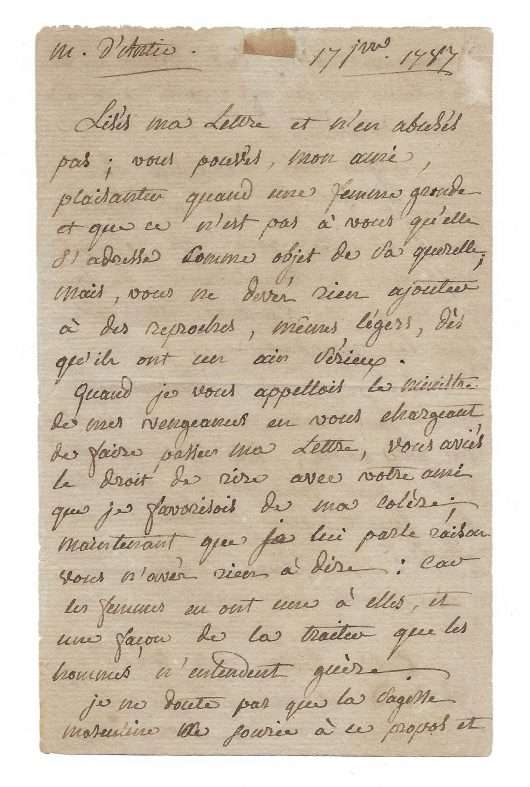 m. d'Antic. 17 jvr. 1787
Lisés ma Lettre et n'en abusés
pas; vous pouvés, mon ami,
plaisanter quand une femme gronde
et que ce n'est pas à vous qu'elle
s'adresse comme objet de sa querelle;
mais, vous ne devés rien ajouter
à des reproches, mêmes légers, dès
qu'ils ont un air sérieux.
Quand je vous appellois le ministre
de mes vengeances en vous chargeant
de faire passer ma Lettre, vous aviés
le droit de rire avec votre ami
que je favorisois de ma colère;
maintenant que je lui parle raison
vous n'avés rien à dire: car
les femmes en ont une à elles, et
une façon de la traiter que les
hommes n'entendent guère
je ne doute pas que la sagesse
masculine ne sourie à ce propos et